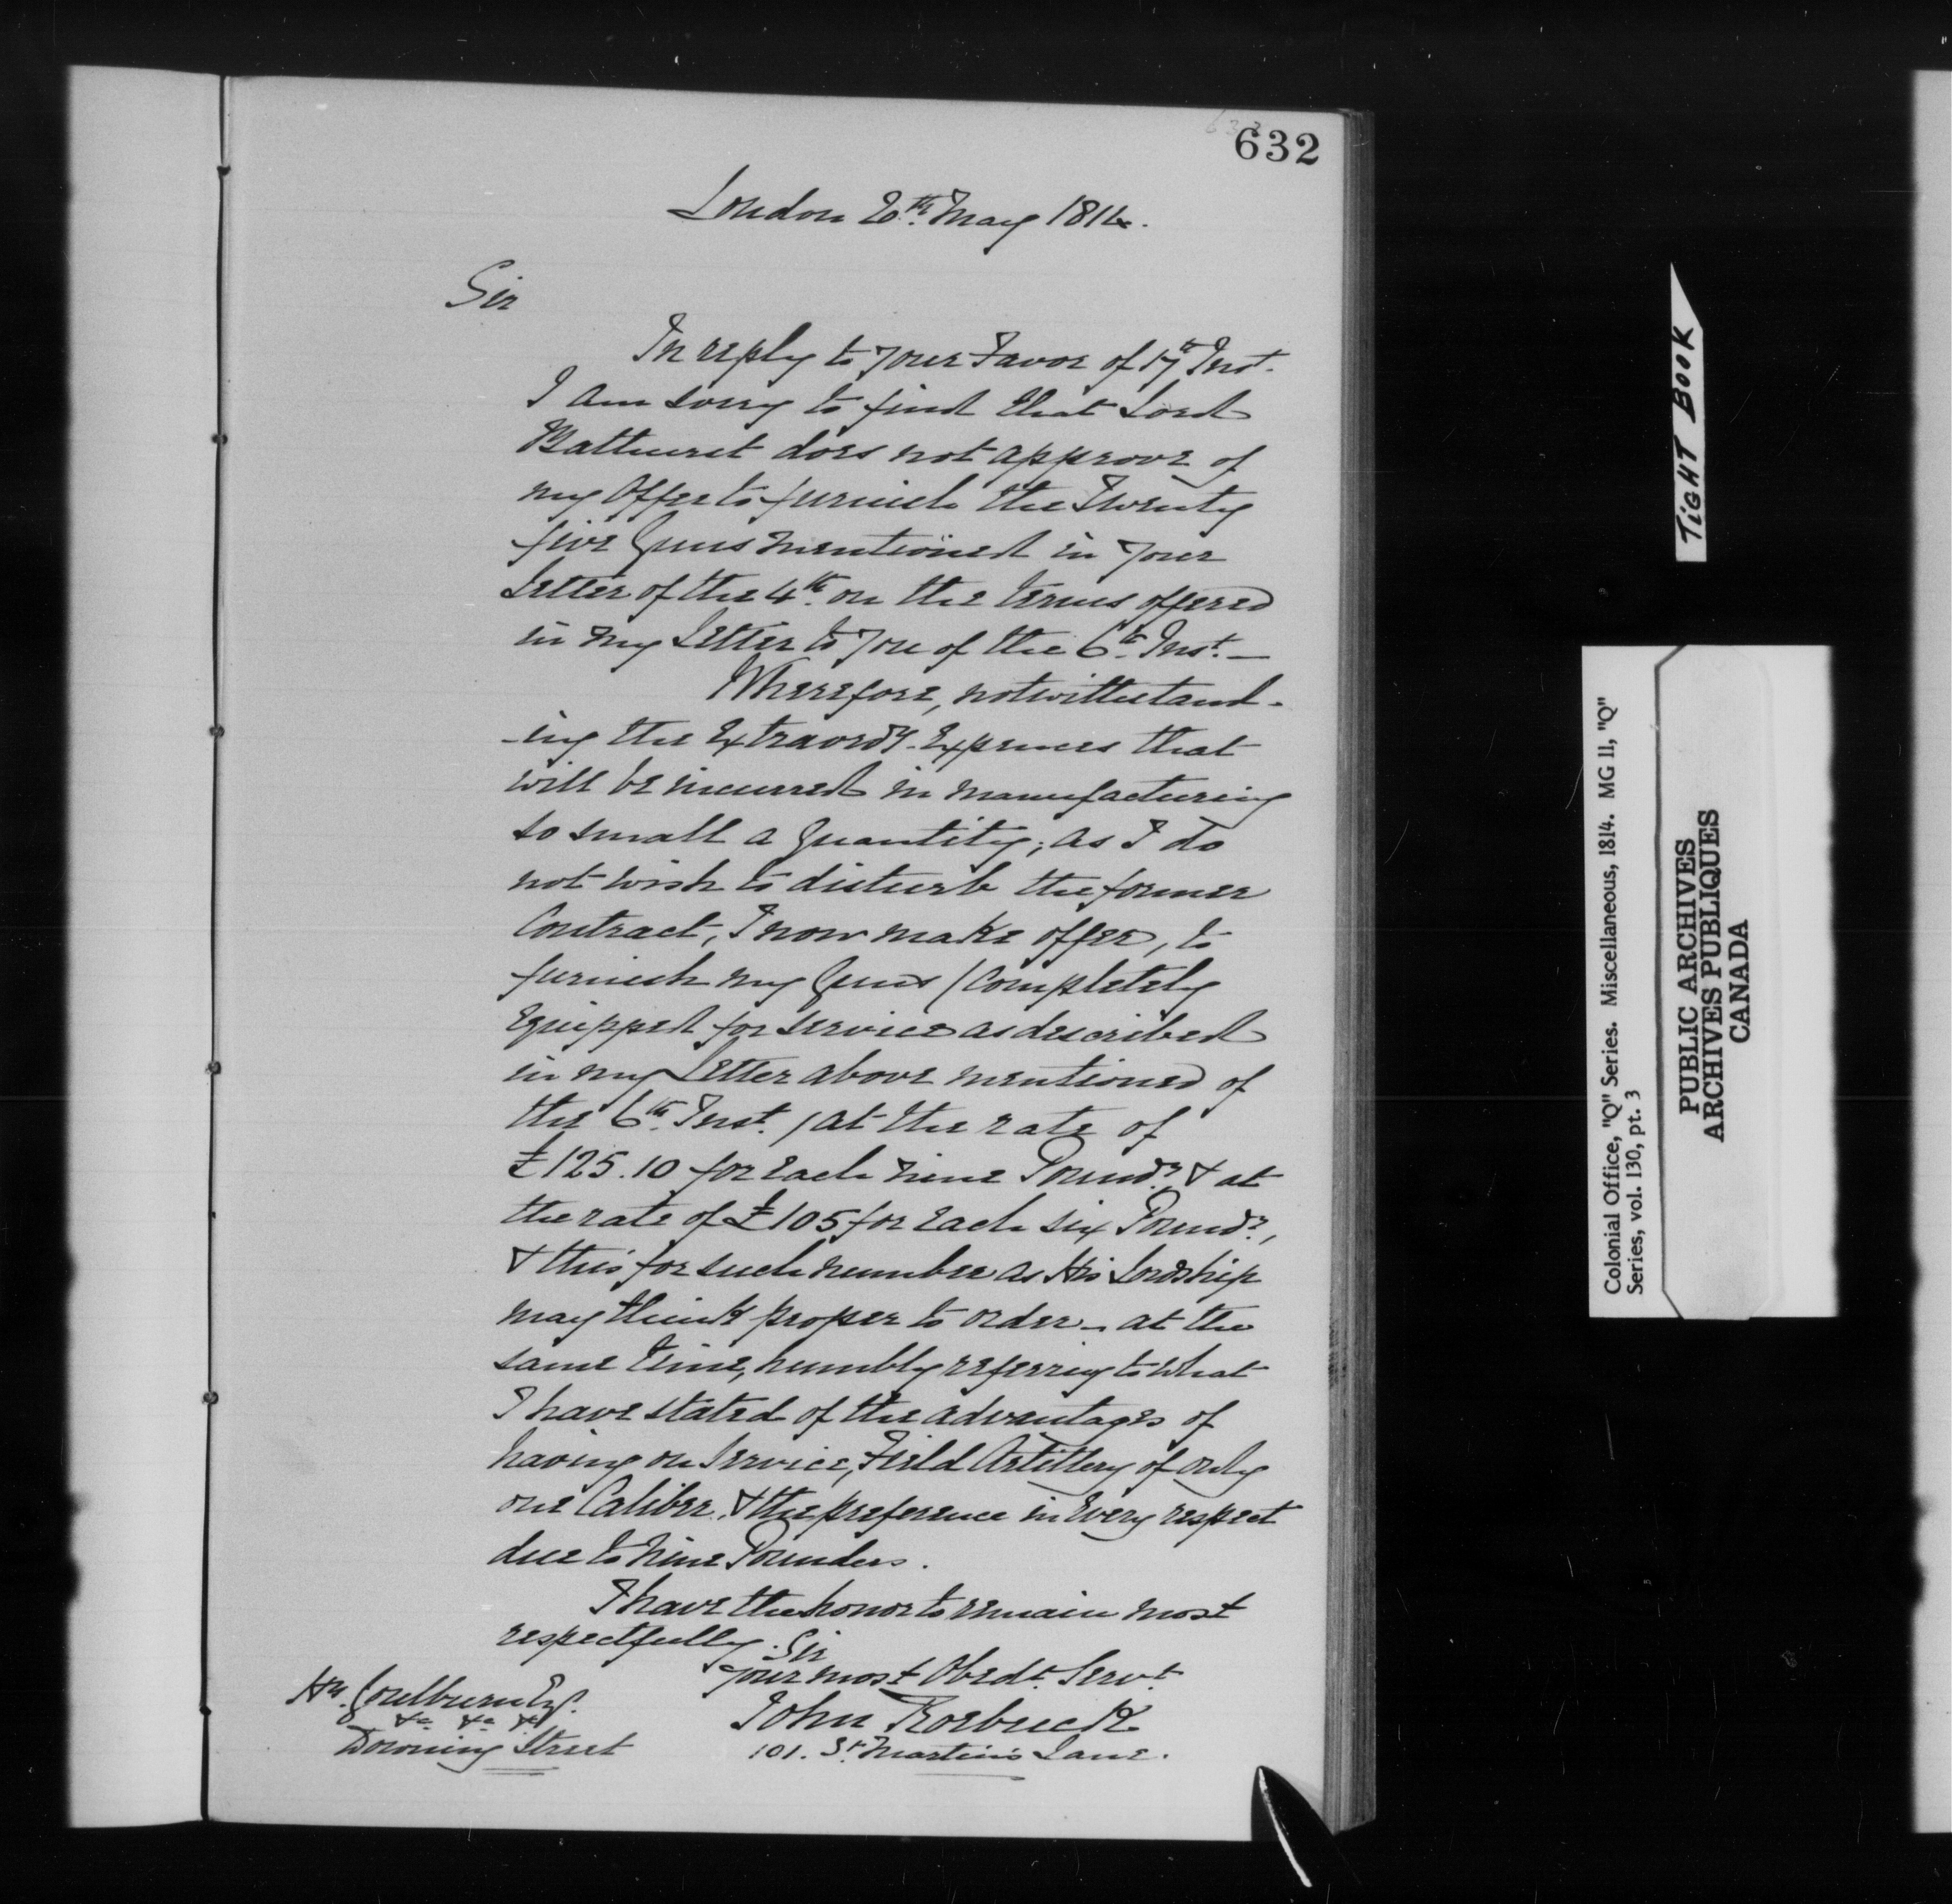 632
London 20th. May 1814.
Sir
In reply to your Favor of 17th Inst.
I am sorry to find that Lord
Bathurst does not approve of
my Offer to furnish the Twenty
five Guns mentioned in your
Letter of the 4th. on the terms offered
in my Letter to you of the 6th. Inst. —
Wherefore, notwithstand-
-ing the Extraordy. Expences that
will be incurred in manufacturing
so small a Quantity; as I do
not wish to disturb the former
Contract, I now make offer, to
furnish my Guns (completely
Equipped for service as described
in my Letter above mentioned of
the 6th. Inst.) at the rate of
£125.10 for Each nine Poundr. & at
the rate of £105 for Each six Poundr.,
& this for such number as His Lordship
may think proper to order - at the
same time, humbly referring to what
I have stated of the advantages of
having on Service, Field Artillery of only
one Caliber, & the preference in Every respect
due to Nine Pounders.
I have the honor to remain most
respectfully. Sir
your most Obedt. Servt.
John Roebuck
101. St. Martin's Lane.
Hy. Goulburn Esq.
&c. &c. &c
Downing Street
TIGHT BOOK
Colonial Office, "Q" Series. Miscellaneous, 1814. MG 11, "Q"
Series, vol. 130, pt. 3
PUBLIC ARCHIVES
ARCHIVES PUBLIQUES
CANADA